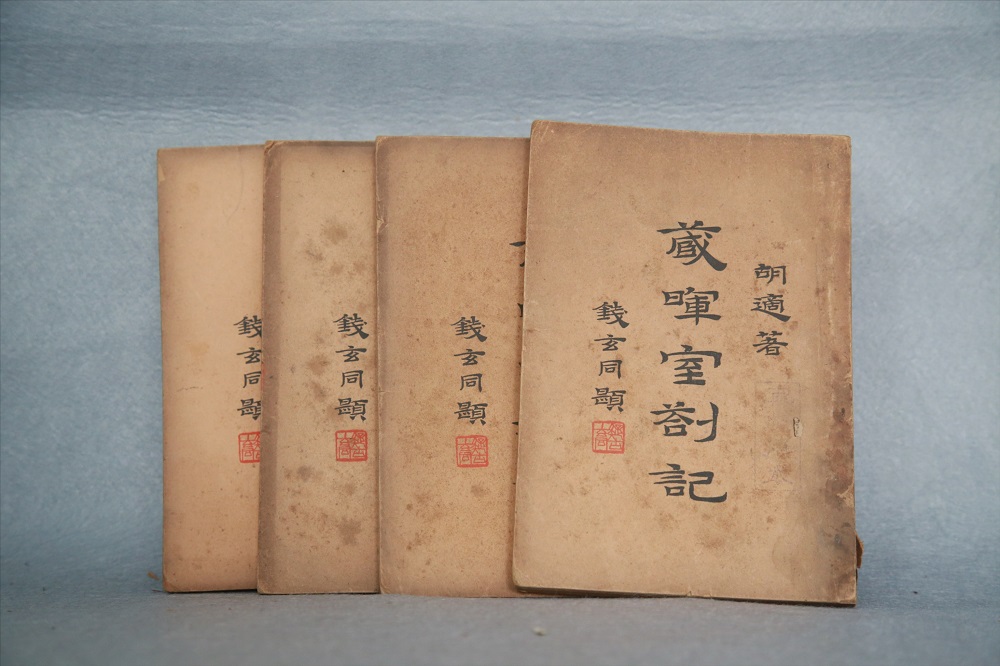 胡適著
藏暉室劄記
錢玄同題
錢玄同題
錢玄同題
錢玄同題